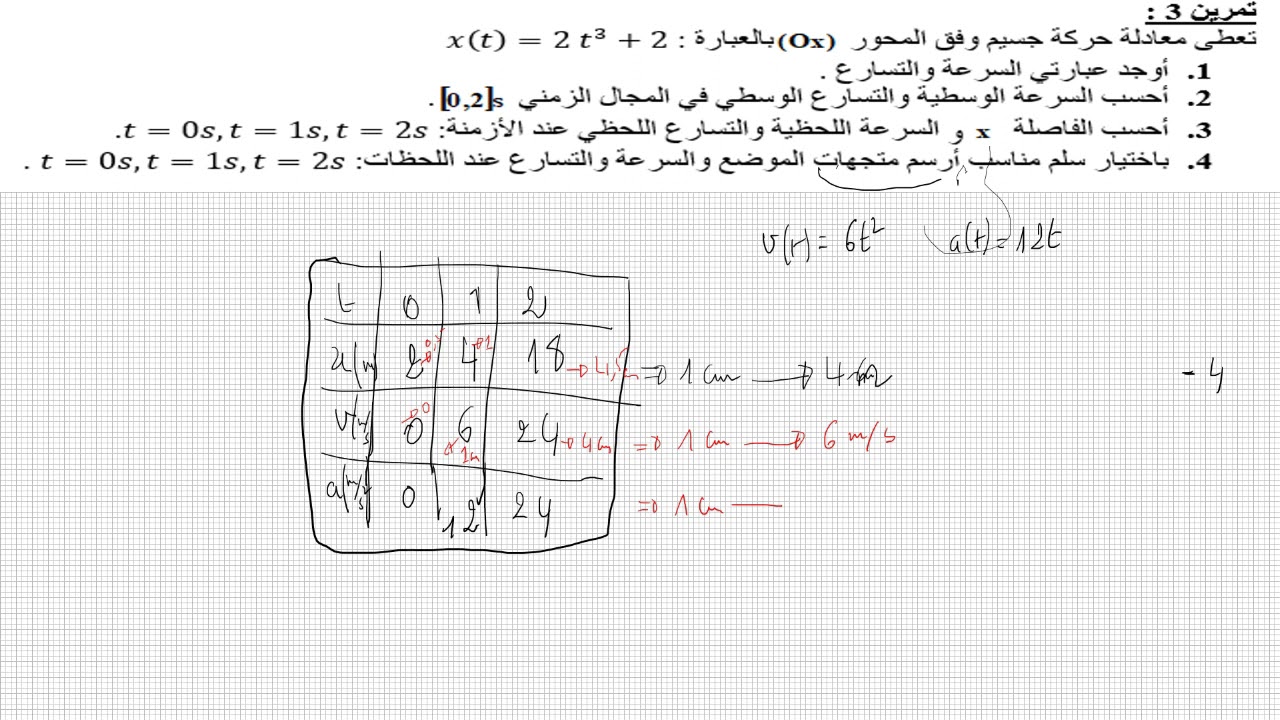 تمرين 3 :
تعطى معادلة حركة جسيم وفق المحور (Ox) بالعبارة : x(t) = 2 t³ + 2
1. أوجد عبارتي السرعة والتسارع .
2. أحسب السرعة الوسطية والتسارع الوسطي في المجال الزمني [0,2]s .
3. أحسب الفاصلة x و السرعة اللحظية والتسارع اللحظي عند الأزمنة: t = 0s, t = 1s, t = 2s.
4. باختيار سلم مناسب أرسم متجهات الموضع والسرعة والتسارع عند اللحظات: t = 0s, t = 1s, t = 2s .
v(t) = 6t² a(t) = 12t
t 0 1 2
2 4 →1 18 → 4,5 ⇒ 1 cm → 4 - 4
v(m/s) 0 →0 6 → 1 24 → 4 cm ⇒ 1 cm → 6 m/s
0 12 24 ⇒ 1 cm —